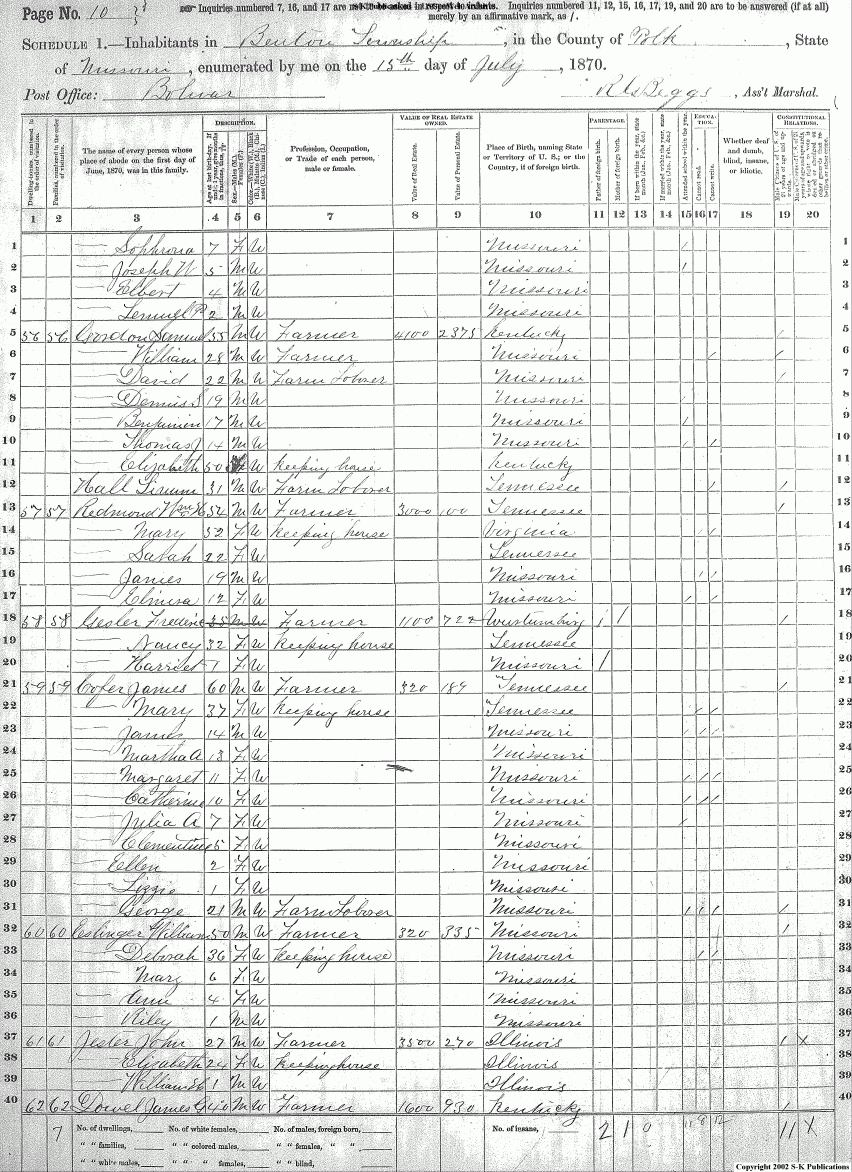 Page No. 10
Inquiries numbered 7, 16, and 17 are not to be asked in respect to infants. Inquiries numbered 11, 12, 15, 16, 17, 19, and 20 are to be answered (if at all) merely by an affirmative mark, as /.
SCHEDULE 1.—Inhabitants in Benton Township, in the County of Polk, State
of Missouri, enumerated by me on the 15th day of July, 1870.
Post Office: Bolivar
Beggs, Ass't Marshal.
DESCRIPTION. VALUE OF REAL ESTATE OWNED. PARENTAGE. EDUCATION. CONSTITUTIONAL RELATIONS.
The name of every person whose place of abode on the first day of June, 1870, was in this family.
Profession, Occupation, or Trade of each person, male or female.
Value of Real Estate. Value of Personal Estate.
Place of Birth, naming State or Territory of U. S.; or the Country, if of foreign birth.
Father of foreign birth. Mother of foreign birth.
Attended school within the year. Cannot read. Cannot write.
Whether deaf and dumb, blind, insane, or idiotic.
1 2 3 4 5 6 7 8 9 10 11 12 13 14 15 16 17 18 19 20
1 — Sophrona 7 F W Missouri / 1
2 — Joseph W 5 M W Missouri / 2
3 — Elbert 4 M W Missouri 3
4 — Lemuel P 2 M W Missouri 4
5 56 56 Gordon Samuel 55 M W Farmer 4100 2375 Kentucky / 5
6 — William 28 M W Farmer Missouri / / 6
7 — David 22 M W Farm Laborer Missouri / 7
8 — Dennis S 19 M W Missouri / 8
9 — Benjamin 17 M W Missouri / 9
10 — Thomas J 14 M W Missouri / / 10
11 — Elizabeth 50 W Keeping house Kentucky 11
12 Hall 31 M W Farm Laborer Tennessee / / 12
13 57 57 Redmond Wm H M W Farmer 3000 100 Tennessee / 13
14 — Mary 52 F W Keeping house Virginia / / 14
15 — Sarah 22 F W Tennessee 15
16 — James 19 M W Missouri / / 16
17 — 12 F W Missouri / / 17
18 58 58 Gesler Frederic 35 M W Farmer 1100 722 / / / 18
19 — Nancy 32 F W Keeping house Tennessee 19
20 — Harriet 1 F W Missouri / 20
21 59 59 Cofer James 60 M W Farmer 320 189 Tennessee / 21
22 — Mary 37 F W Keeping house Tennessee / / 22
23 — James 14 M W Missouri / / / 23
24 — Martha A 13 F W Missouri 24
25 — Margaret 11 F W Missouri / / / 25
26 — Catherine 10 F W Missouri / / / 26
27 — Julia A 7 F W Missouri / 27
28 — Clementine 5 F W Missouri 28
29 — Ellen 2 F W Missouri 29
30 — Lizzie 1 F W Missouri 30
31 — George 21 M W Farm Laborer Missouri / / / / 31
32 60 60 Eslinger William 50 M W Farmer 320 335 Missouri / 32
33 — Deborah 36 F W Keeping house Missouri / / 33
34 — Mary 6 F W Missouri 34
35 — Ann 4 F W Missouri 35
36 — Riley 1 M W Missouri 36
37 61 61 Jester John 27 M W Farmer 3500 270 Illinois / X 37
38 — Elizabeth 24 F W Keeping house Illinois 38
39 — William 1 M W Illinois 39
40 62 62 Dowel James G 40 M W Farmer 1600 930 Kentucky / 40
7 No. of dwellings, No. of white females, No. of males, foreign born, No. of insane, 2 1 0 11 8 12 11 X
" " families, " " colored males, " " females, " "
" " white males, " " " females, " " blind,
Copyright 2002 S-K Publications